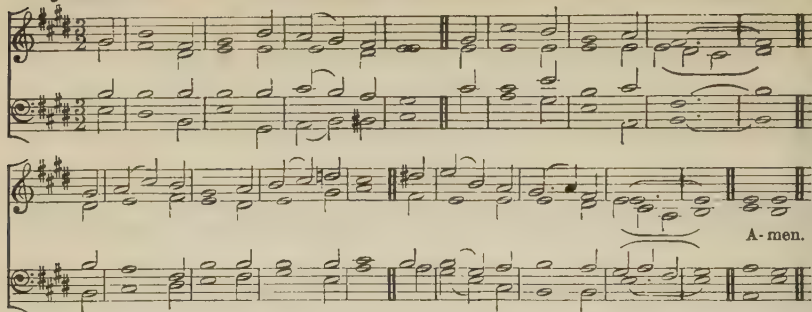 A- men.